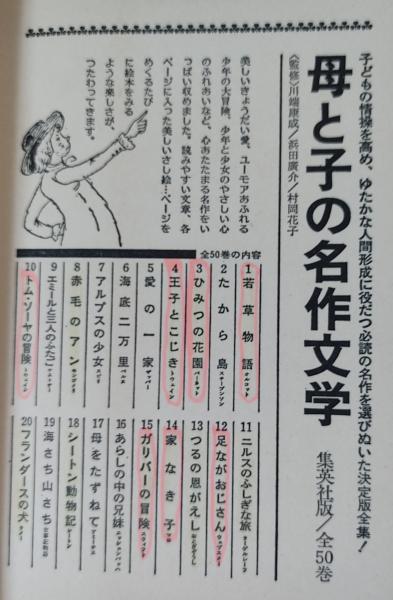 子どもの情操を高め、ゆたかな人間形成に役だつ必読の名作を選びぬいた決定版全集!
母と子の名作文学
集英社版/全50巻
〈監修〉川端康成/浜田廣介/村岡花子
美しいきょうだい愛、ユーモアあふれる
少年の大冒険、少年と少女のやさしい心
のふれあいなど、心あたたまる名作をい
っぱい収めました。読みやすい文章、各
ページに入った美しいさし絵…ページを
めくるたび
に絵本をみる
ような楽しさが、
つたわってきます。
全50巻の内容
1 若草物語 オルコット
2 たから島 スチーブンソン
3 ひみつの花園 バーネット
4 王子とこじき トウェイン
5 愛の一家 ザッパー
6 海底二万里 ベルヌ
7 アルプスの少女 スピリ
8 赤毛のアン モンゴメリ
9 エミールと三人のふたご ケストナー
10 トム・ソーヤの冒険 トウェイン
11 ニルスのふしぎな旅 ラーゲルレーフ
12 足ながおじさん ウェブスター
13 つるの恩がえし
14 家なき子 マロ
15 ガリバーの冒険 スウィフト
16 あらしの中の兄妹
17 母をたずねて アミーチス
18 シートン動物記 シートン
19 海さち山さち
20 フランダースの犬